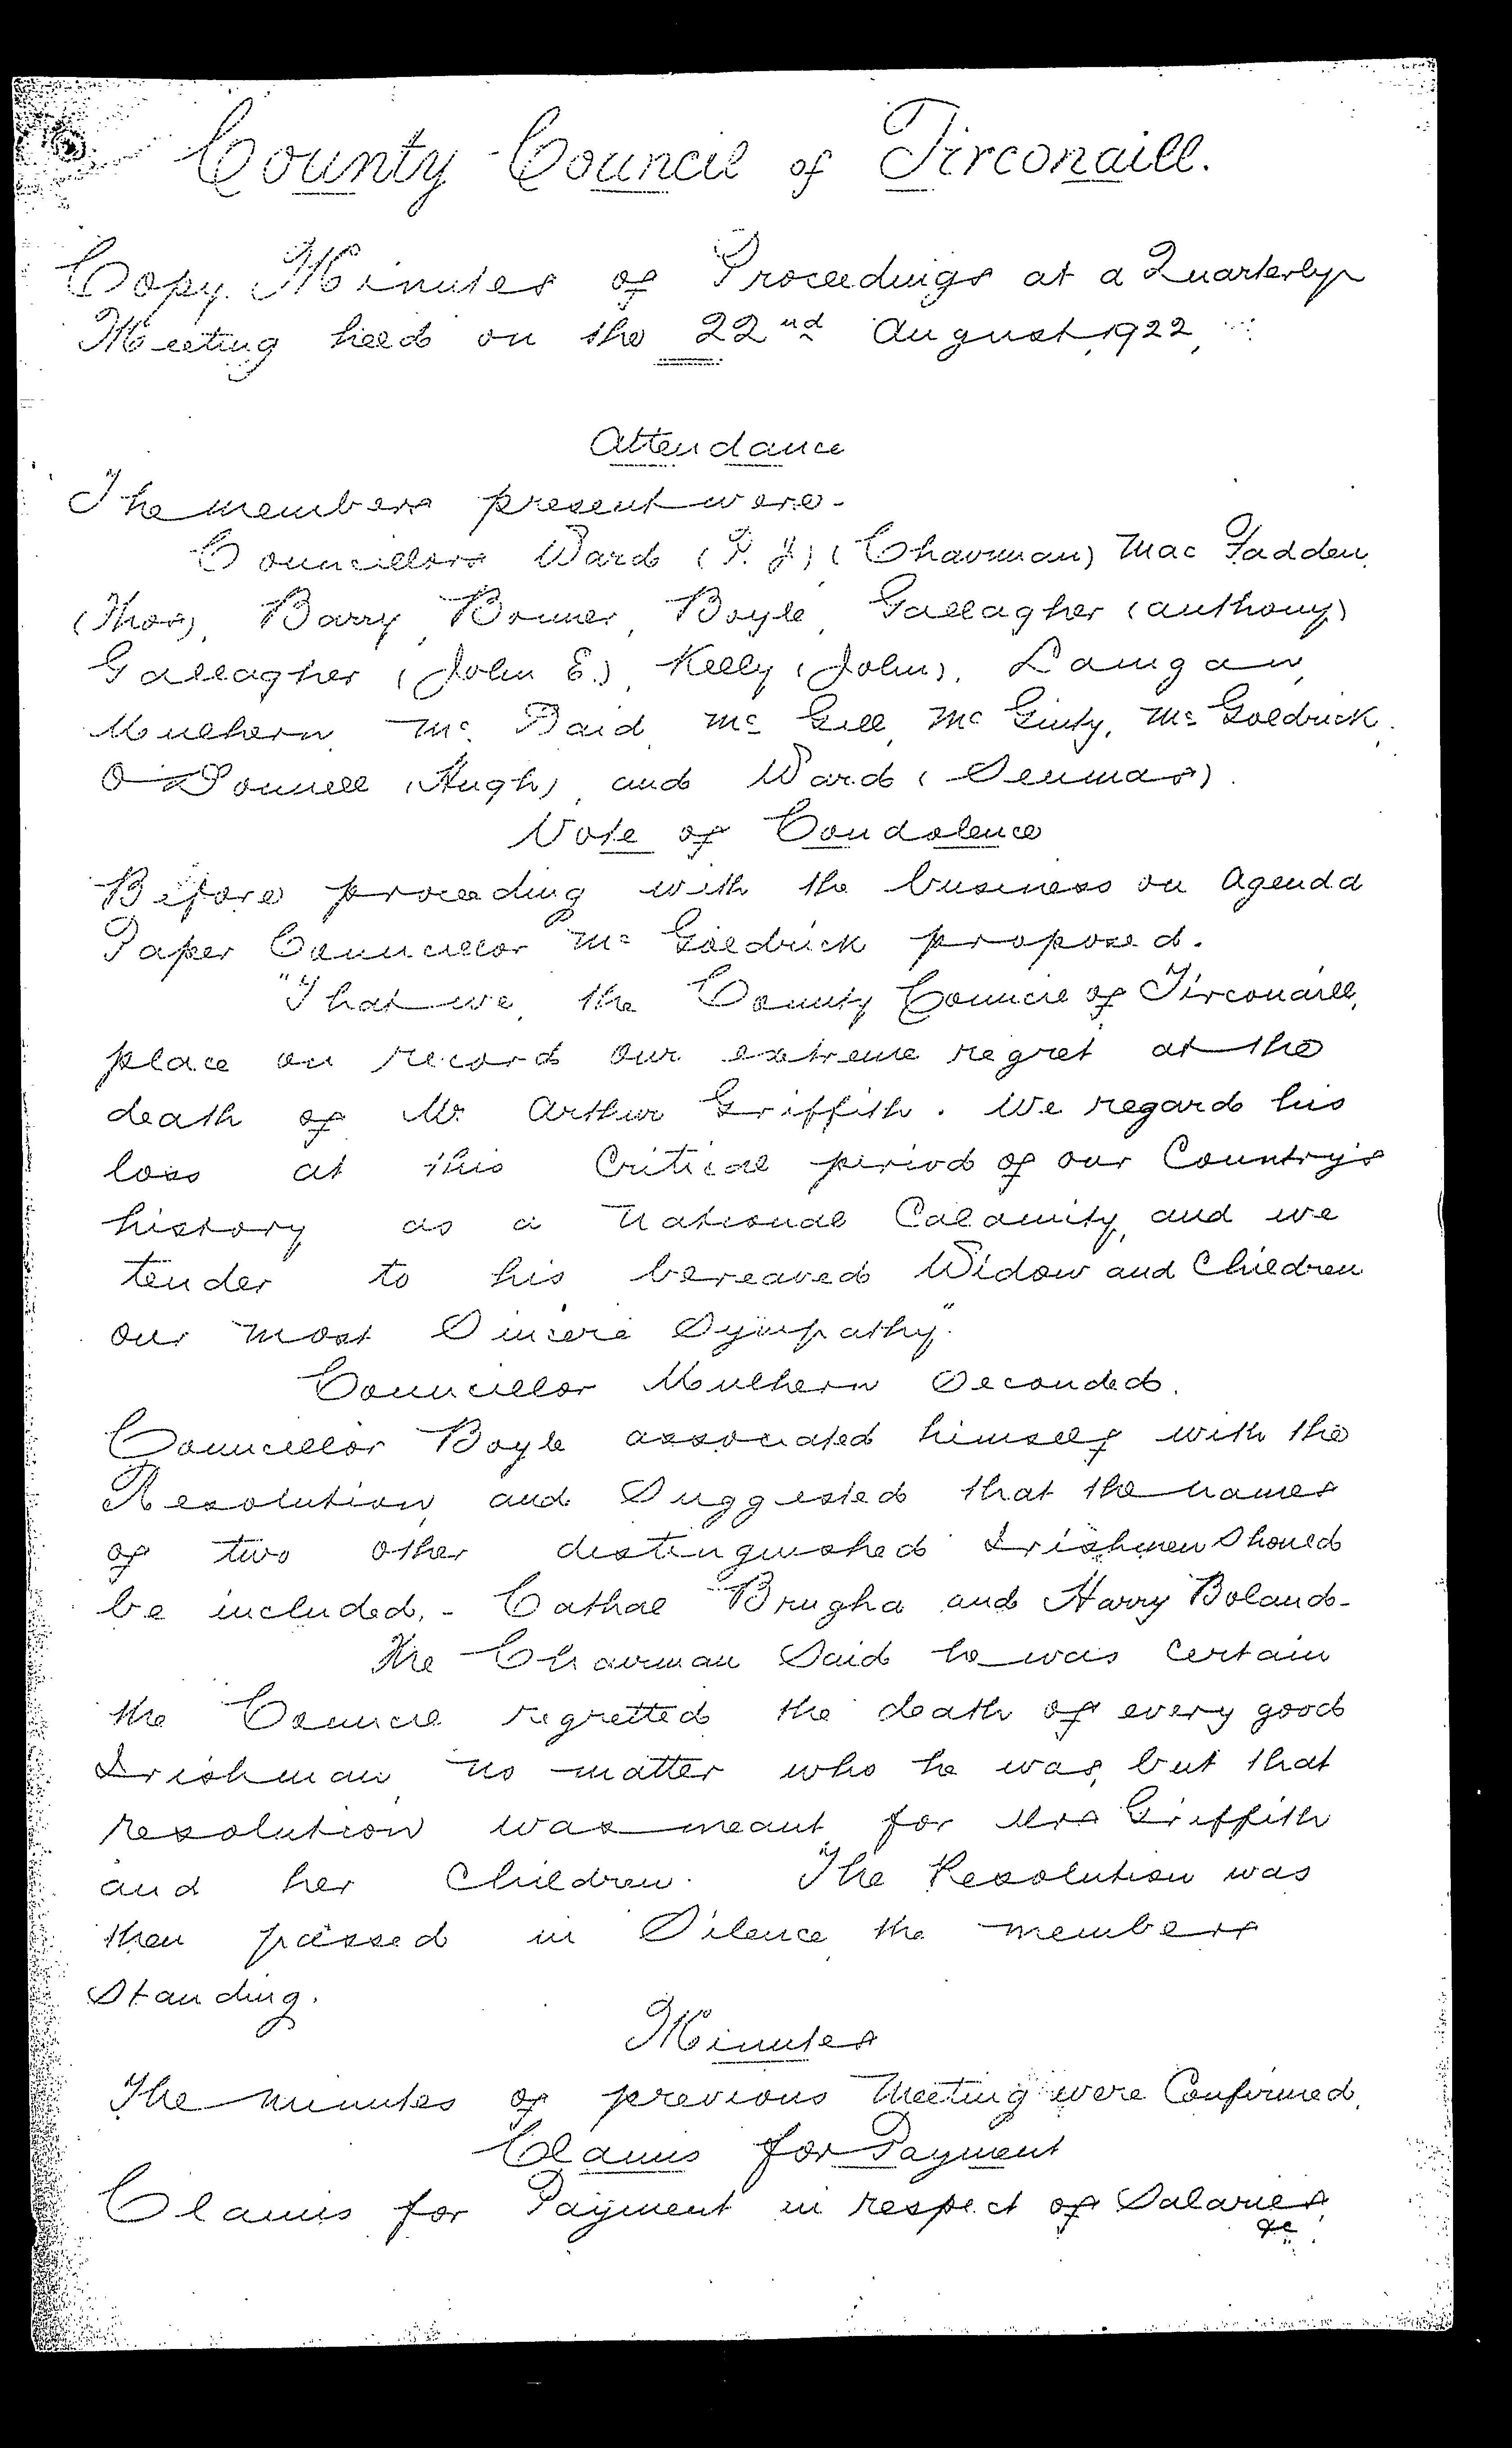 County Council of Tirconaill.
Copy Minutes of Proceedings at a Quarterly
Meeting held on the 22nd August, 1922,
Attendance
The members present were -
Councillors Ward (P. J.) (Chairman) Mac Fadden,
(Thos), Barry, Bonner, Boyle, Gallagher (Anthony)
Gallagher (John E.), Kelly (John), Langan,
Mulhern, Mc Daid, Mc Gill, Mc Ginty, Mc Goldrick,
O'Donnell (Hugh), and Ward (Seumas).
Vote of Condolence
Before proceeding with the business on Agenda
Paper Councillor Mc Goldrick proposed.
"That we, the County Council of Tirconaill,
place on record our extreme regret at the
death of Mr Arthur Griffith. We regard his
loss at this Critical period of our Country's
history as a National Calamity, and we
tender to his bereaved Widow and Children
our most Sincere Sympathy."
Councillor Mulhern Seconded.
Councillor Boyle associated himself with the
Resolution, and Suggested that the names
of two other distinguished Irishmen Should
be included, - Cathal Brugha and Harry Boland -
The Chairman Said he was Certain
the Council regretted the death of every good
Irishman, no matter who he was, but that
resolution was meant for Mrs Griffith
and her Children. The Resolution was
then passed in Silence, the members
Standing.
Minutes
The minutes of previous Meeting were Confirmed.
Claims for Payment
Claims for Payment in respect of Salaries,
&c